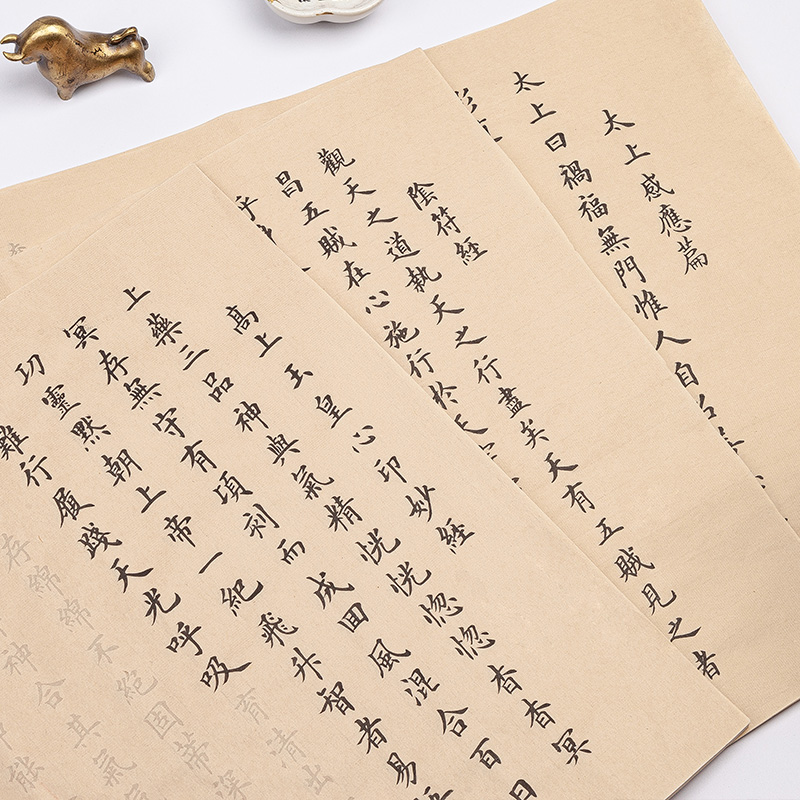 太上感應篇
太上曰禍福無門惟人自
陰符經
觀天之道執天之行盡矣天有五賊見之者
昌五賊在心施行於天
乎
高上玉皇心印妙經
上藥三品神與氣精恍恍惚惚杳杳冥
冥存無守有頃刻而成回風混合百日
功靈默朝上帝一紀飛升智者易
難行履踐天光呼吸育清出
存綿綿不絕固蒂深
神合其氣
能